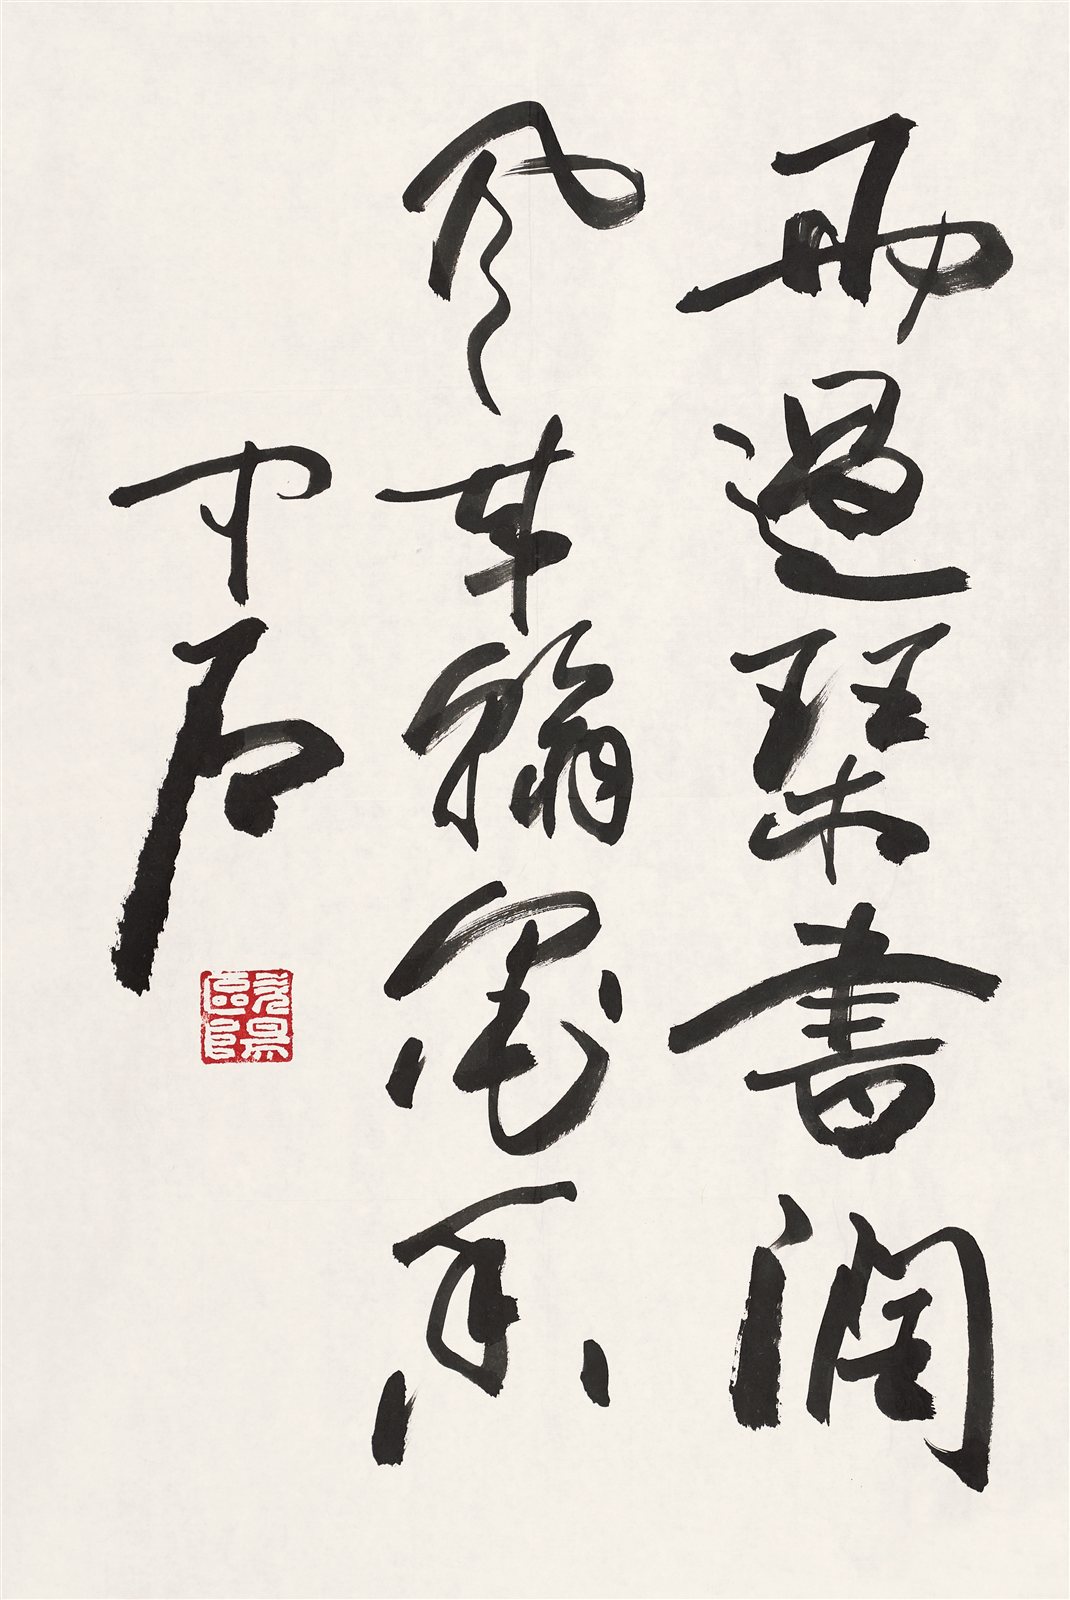 雨過琴書潤
風來翰墨香
中石
歐陽